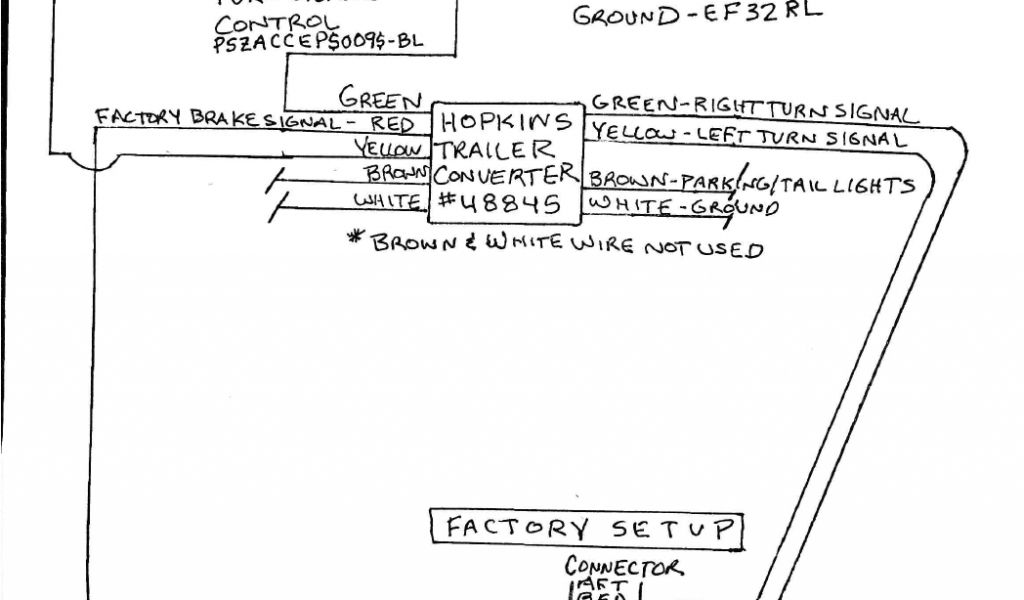 CONTROL
PSZACCEP$009$-BL
GROUND-EF32RL
GREEN
FACTORY BRAKE SIGNAL- RED
YELLOW
BROWN
WHITE
HOPKINS
TRAILER
CONVERTER
#48845
GREEN-RIGHT TURN SIGNAL
YELLOW-LEFT TURN SIGNAL
BROWN-PARKING/TAIL LIGHTS
WHITE-GROUND
*BROWN & WHITE WIRE NOT USED
FACTORY SETUP
CONNECTOR
AFT
BED